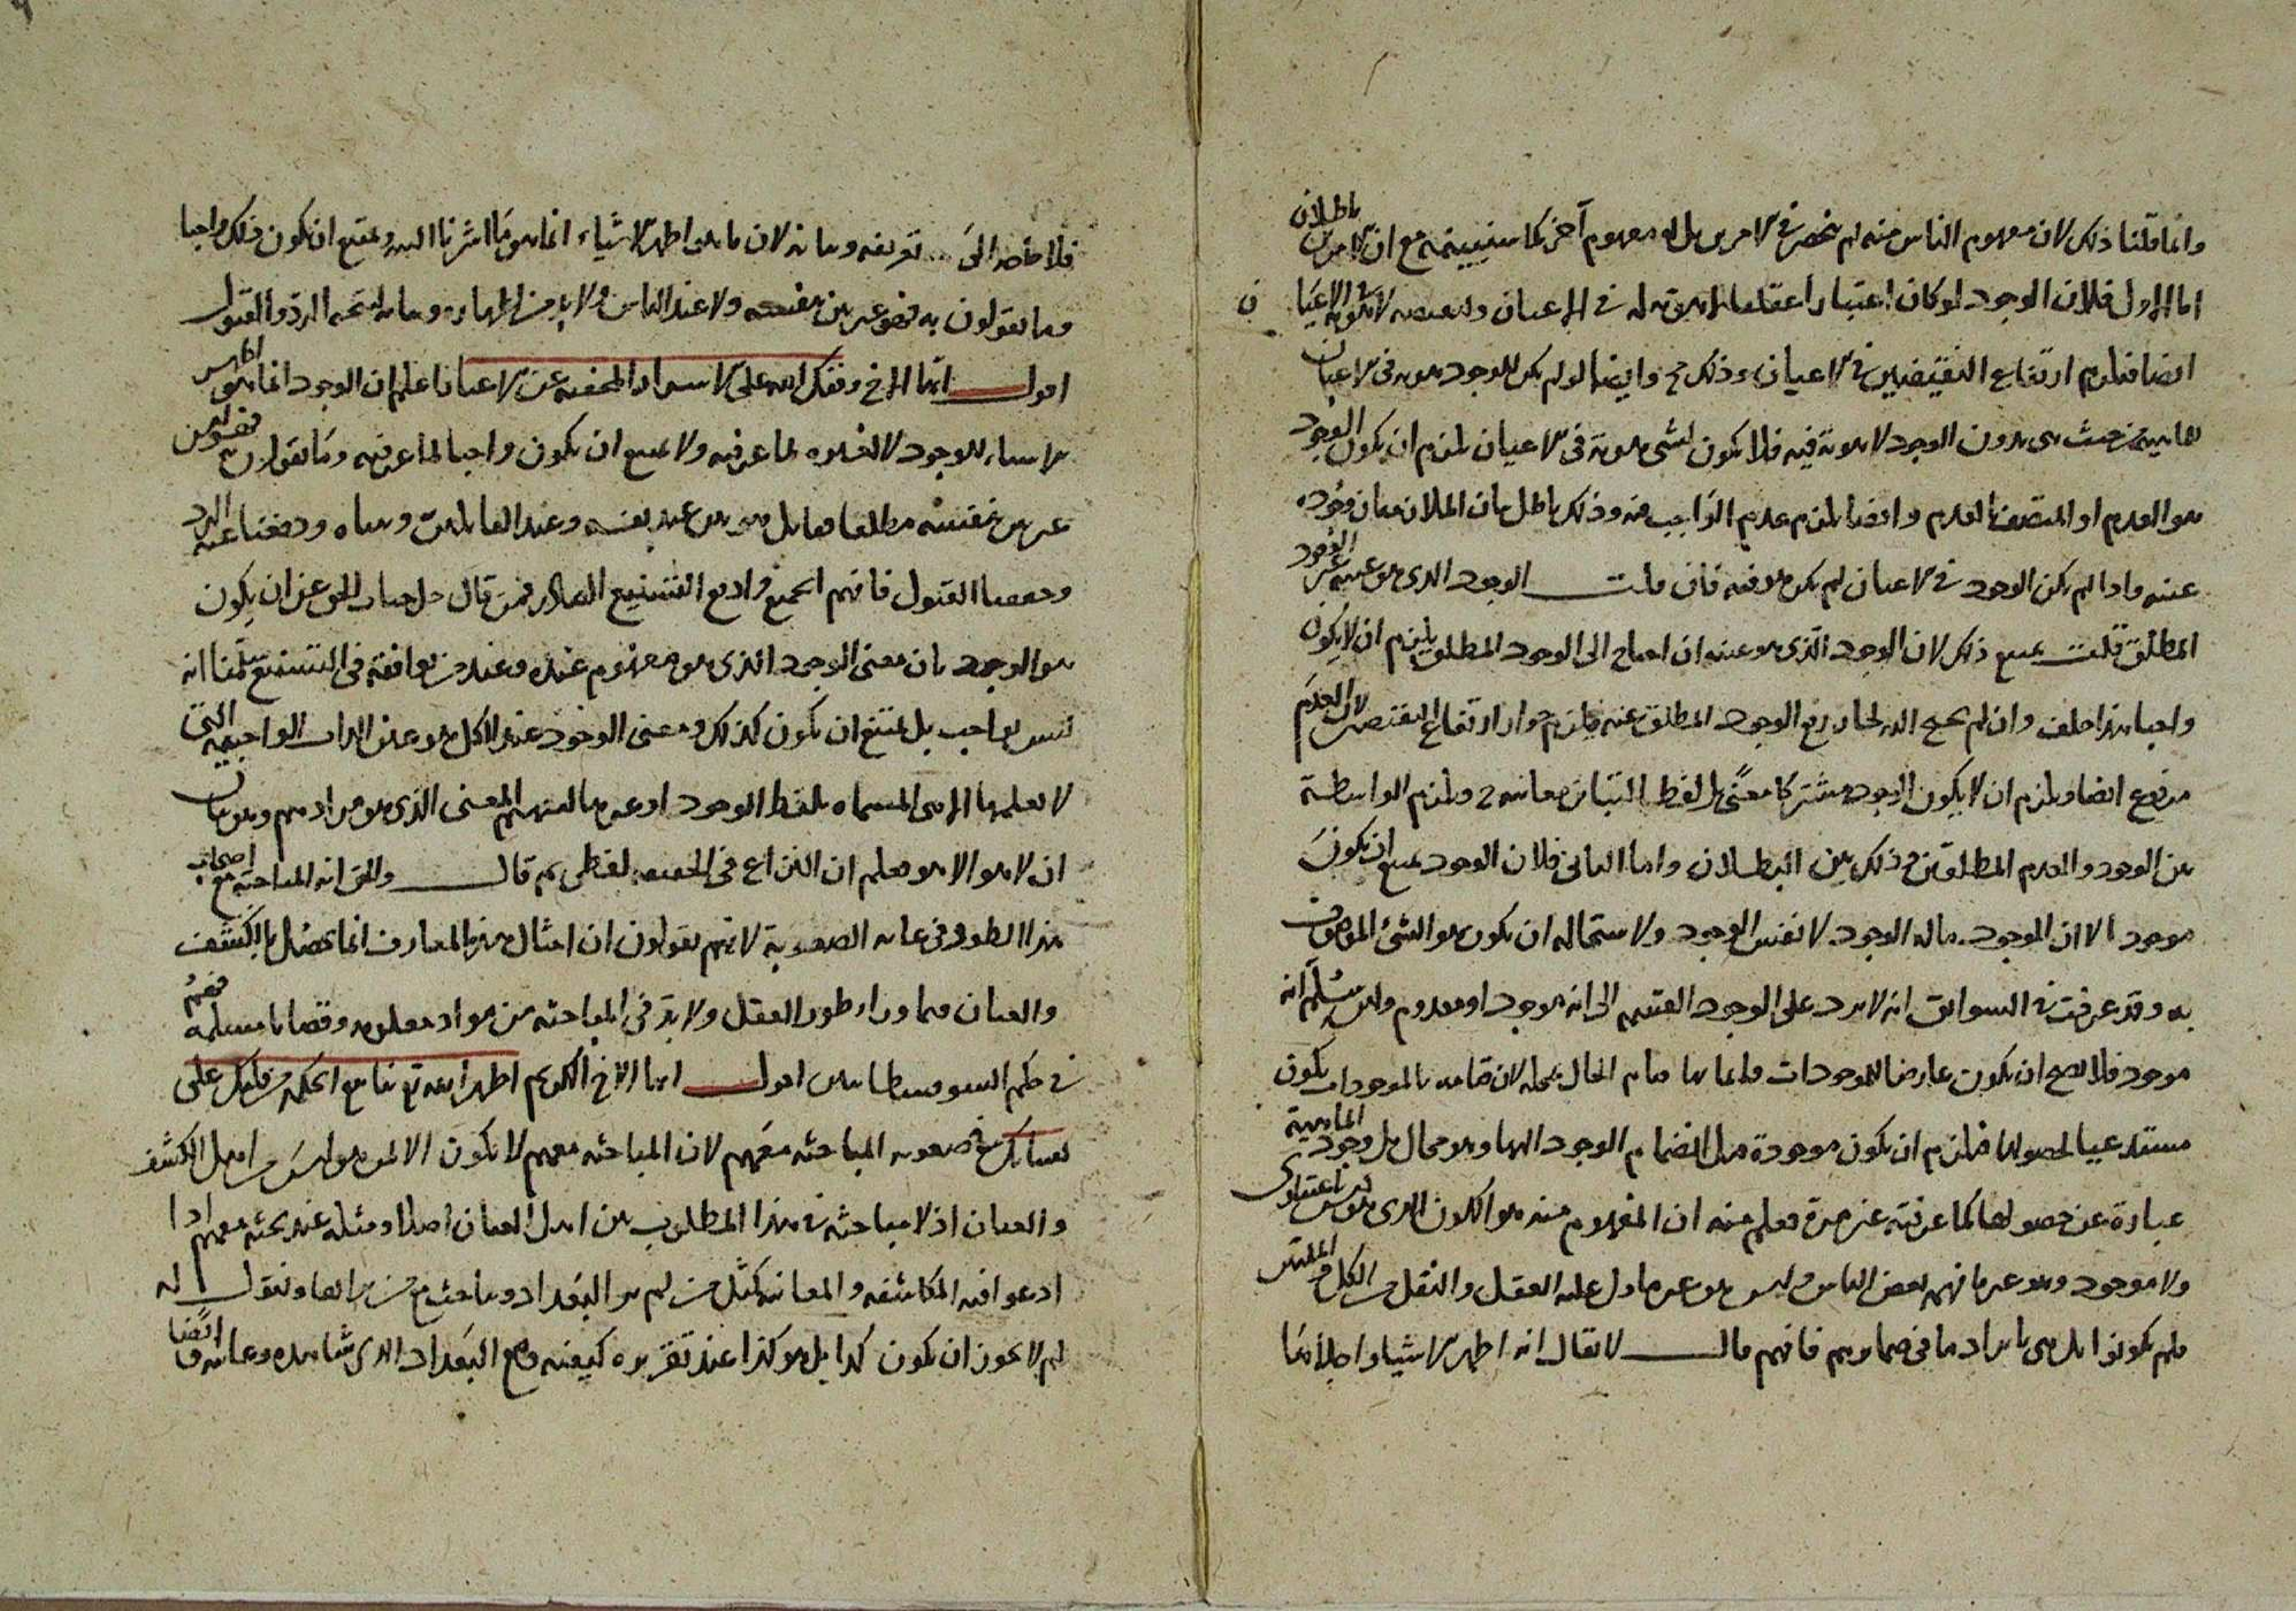 وانما قلنا ذلك لان مفهوم الناس منه لم ينحصر فى الامرين بل له مفهوم آخر كما سنبينه مع ان الامرين باطلان
اما الاول فلان الوجود لو كان اعتبارا عقليا لا هوية له فى الاعيان ونقيضه لا هوية له فى الاعيان
ايضا فيلزم ارتفاع النقيضين فى الاعيان وذلك مح وايضا لو لم يكن للوجود هوية فى الاعيان
الماهية من حيث هى بدون الوجود لا هوية فيه فلا يكون لشى هوية فى الاعيان يلزم ان يكون الوجود
هو العدم او المتصف بالعدم وايضا يلزم عدم الواجب منه وذلك باطل بيان الملازمة ان وجوده
عينه واذا لم يكن الوجود فى الاعيان لم يكن هو فيه فان قلت الوجود الذى هو عينه غير الوجود
المطلق قلت يمتنع ذلك لان الوجود الذى هو عينه ان احتاج الى الوجود المطلق يلزم ان لا يكون
واجبا هذا خلف وان لم يحتج اليه لجاز رفع الوجود المطلق عنه فيلزم جواز ارتفاع النقيضين لان العدم
مرفوع ايضا ويلزم ان لا يكون الوجود مشتركا معنًى بل لفظا لتباين معانيه ويلزم الواسطة
بين الوجود والعدم المطلقين وذلك بين البطلان واما الثانى فلان الوجود يمتنع ان يكون
موجود الا ان الموجود ماله الوجود لا نفس الوجود ولاستحالة ان يكون هو الشئ الموصوف
به وقد عرفت فى السوابق انه لا يرد على الوجود القسمة الى انه موجود او معدوم ولئن سُلّم انه
موجود فلا يصح ان يكون عارضا للموجودات قائما بها قيام الحال بمحله لان قيامه بالموجودات يكون
مستدعيا لحصولها فيلزم ان يكون موجودة قبل انضمام الوجود اليها وهو محال بل وجود الماهية
عبارة عن حصولها كما عرفته غير مرة فعلم منه ان المفهوم منه هو الكون الذى هو ليس اعتبارى
ولا موجود وهو غير ما فهمه بعض الناس وليس هو غير ما دل عليه العقل والنقل من الكل والملتبس
فلم يكونوا اهل هى بايراد ما فى ضمايرهم فافهم قال لا يقال انه اظهر الاشياء واجلاها
فلا حاجة الى تعريفه وبيانه لان ما هو اظهر الاشياء انما هو ما اشرنا اليه ويمتنع ان يكون ذلك واجبا
وما تقولون به فهو غير بين بنفسه ولا عند الناس ولا بد من اظهاره وبيانه ليتجه الرد والقبول
اقول ايها الاخ وفقك الله على الاسرار المخفية عن الاعيان اعلم ان الوجود انما هو اظهر
الاشياء للوجود لا لغيره لما عرفته ولا يمتنع ان يكون واجبا لما عرفته وما تقولون فهو ليس
غير بين بنفسه مطلقا بل هو بين عند نفسه وعند القائلين وبيناه ودفعنا عنه الرد
وحققنا القبول فافهم الجميع وادفع التشنيع الصادر فمن قال جل جناب الحق عن ان يكون
هو الوجود بان معنى الوجود الذى هو مفهوم عنده وعند من يوافقه فى التشنيع سلّمنا انه
ليس بواجب بل يمتنع ان يكون كذلك ومعنى الوجود عند الكل هو عين الذات الواجبية التى
لا يعلمها الا هى المسماة بلفظ الوجود او غيرها ليفهم المعنى الذى هو مرادهم وهو بيان
ان لا هو الا هو فعلم ان النزاع فى الحقيقة لفظى ثم قال والحق انه المباحثة مع اصحاب
هذا الطور فى غاية الصعوبة لانهم يقولون ان امثال هذه المعارف انما يحصل بالكشف
والعيان فيما وراء طور العقل ولا بد فى المباحثة من مواد معلومة وقضايا مسلمة فهم
فى حكم السوفسطائيين اقول ايها الاخ الكريم اظهر الله تع ينابيع الحكمة من قلبك على
لسانك صعوبة المباحثة معهم لان المباحثة معهم لا يكون الا لمن هو ليس من اهل الكشف
والعيان اذ لا مباحثة فى هذا المطلوب بين اهل العيان اصلا ومثله عند بحثه معهم اذا
ادعوا فيه المكاشفة والمعاينة كمثل من لم ير البغداد ويباحث مع من يراها ويقول له
لم لا يجوز ان يكون كذا بل هو كذا عند تقريره كيفية وضع البغداد الذى شاهده وعاينه ايضا